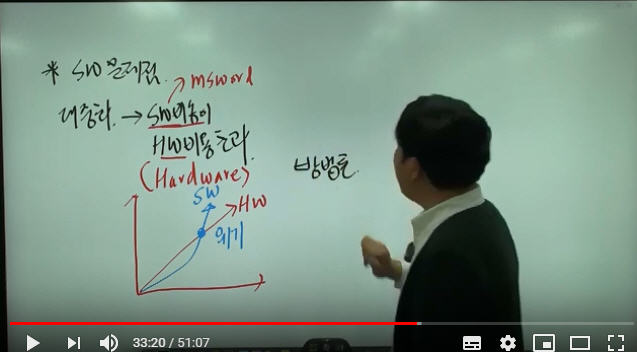 * SW 문제점.
→ msword
대중화. → SW비용이
HW비용초과.
(Hardware)
방법론.
SW
HW
위기
33:20 / 51:07